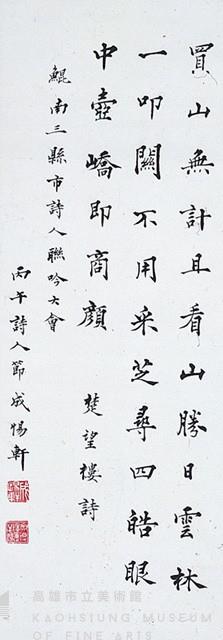 買山無計且看山勝日雲林
一叩關不用采芝尋四皓眼
中壺嶠即商顏　楚望樓詩
鯤南三縣市詩人聯吟大會
丙午詩人節成惕軒
高雄市立美術館
KAOHSIUNG MUSEUM
OF FINE ARTS